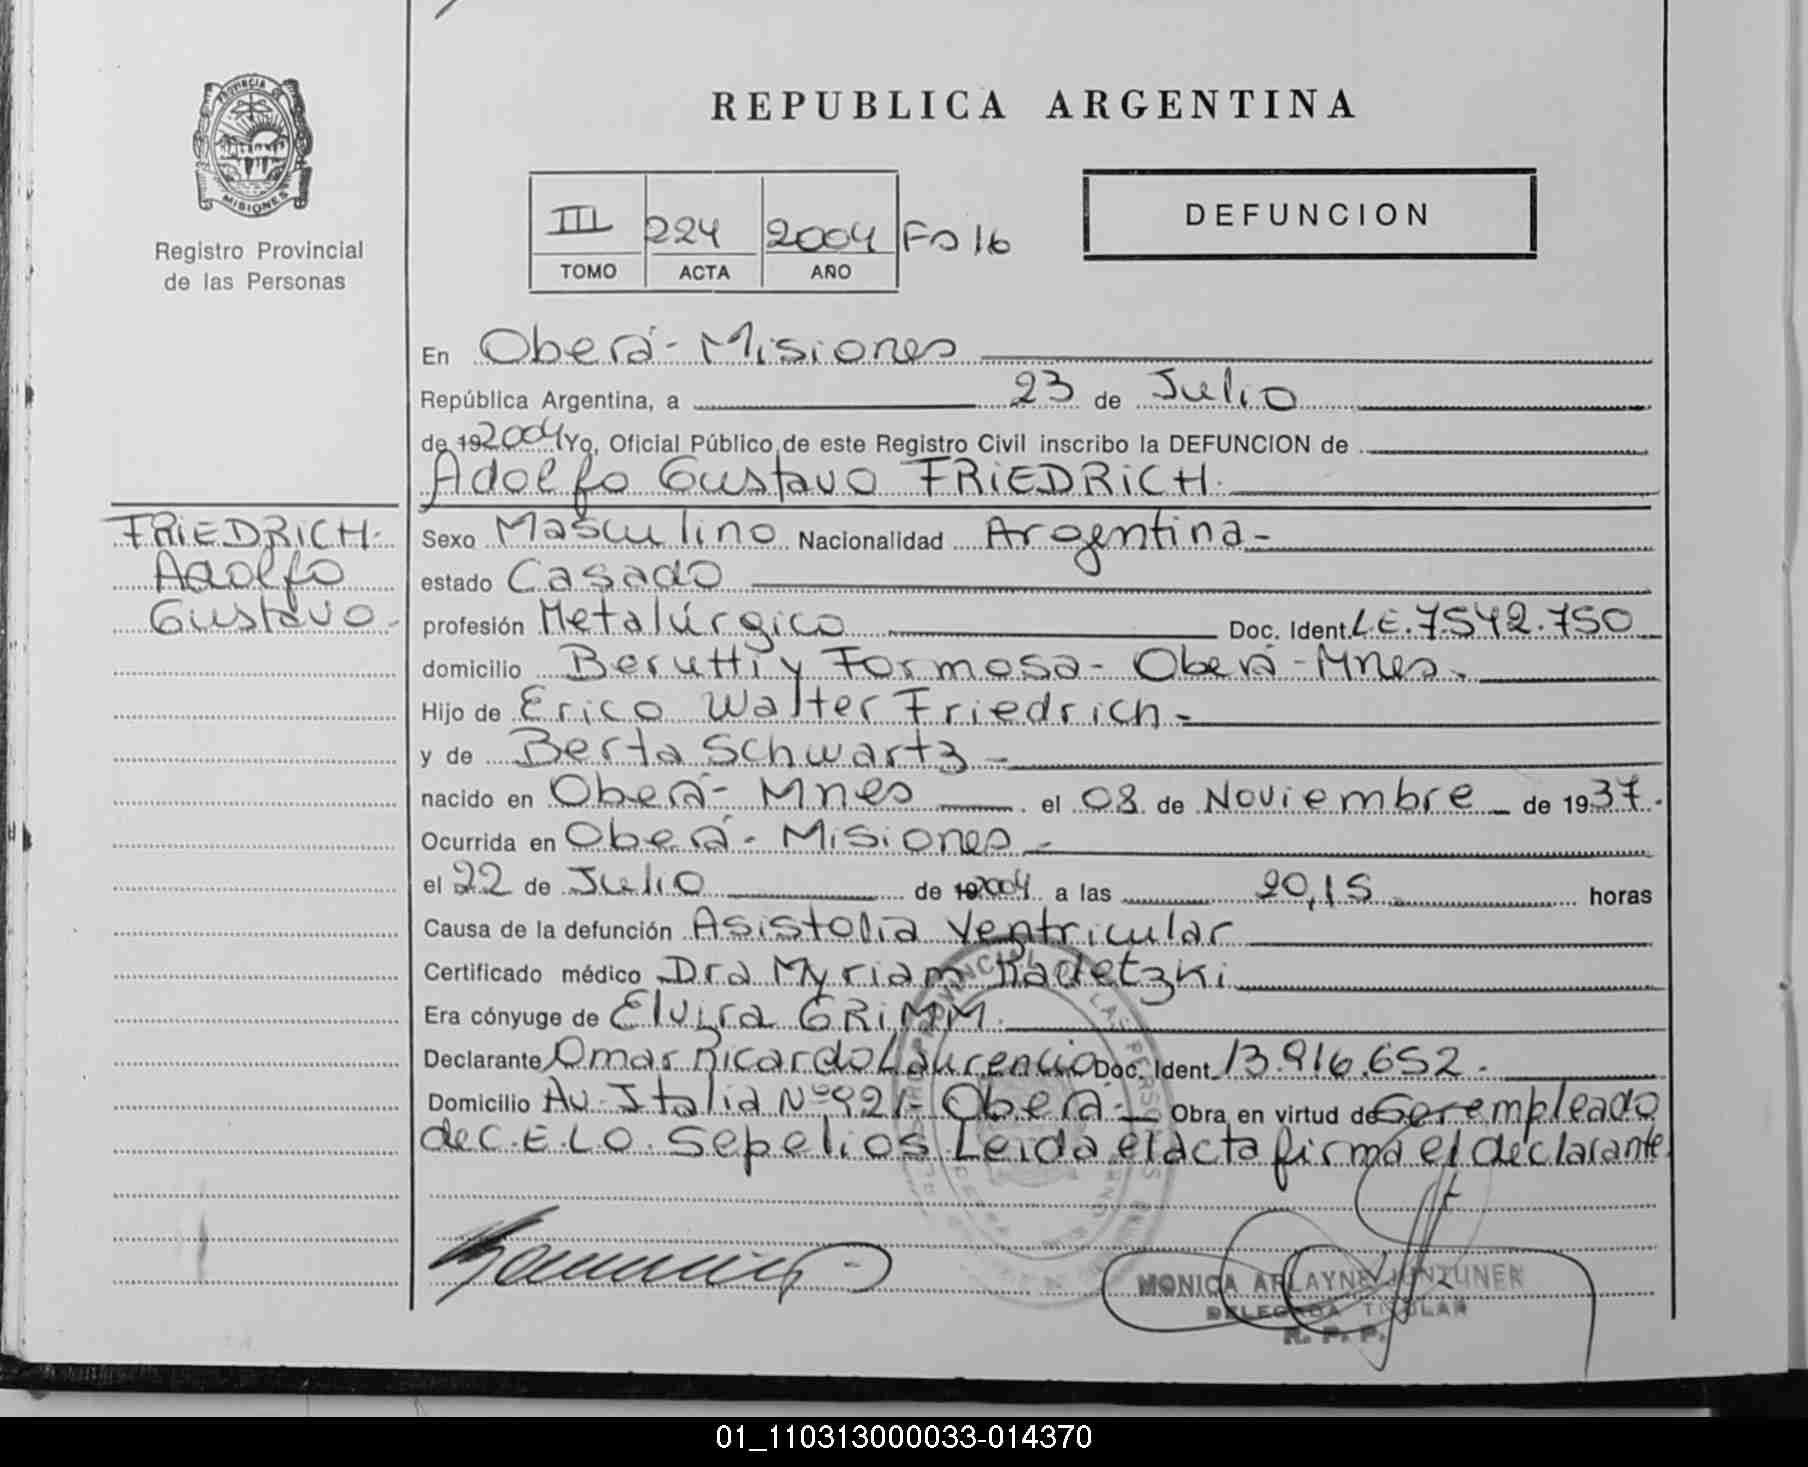 REPUBLICA ARGENTINA
PROVINCIA DE
MISIONES
Registro Provincial
de las Personas
III 224 2004 Fo 16
TOMO ACTA AÑO
DEFUNCION
En Oberá - Misiones
República Argentina, a 23 de Julio
de 192004 Yo, Oficial Público de este Registro Civil inscribo la DEFUNCION de
Adolfo Gustavo FRIEDRICH.
FRIEDRICH.
Adolfo
Gustavo.
Sexo Masculino Nacionalidad Argentina -
estado Casado
profesión Metalúrgico Doc. Ident. L.E. 7.542.750
domicilio Berutti y Formosa - Oberá - Mnes.
Hijo de Erico Walter Friedrich -
y de Berta Schwartz -
nacido en Oberá - Mnes el 08 de Noviembre de 1937.
Ocurrida en Oberá - Misiones -
el 22 de Julio de 192004 a las 20,15 horas
Causa de la defunción Asistolia Ventricular
Certificado médico Dra Myriam Radetzki
Era cónyuge de Elvira GRIMM.
Declarante Omar Ricardo Laurencio Doc. Ident. 13.916.652.
Domicilio Av. Italia Nº 921 - Oberá - Obra en virtud de Ser empleado
de C.E.L.O. Sepelios Leida el acta firma el declarante
MONICA ARLAYNE JUNZUNEN
DELEGADA TITULAR
R. P. P.
01_110313000033-014370